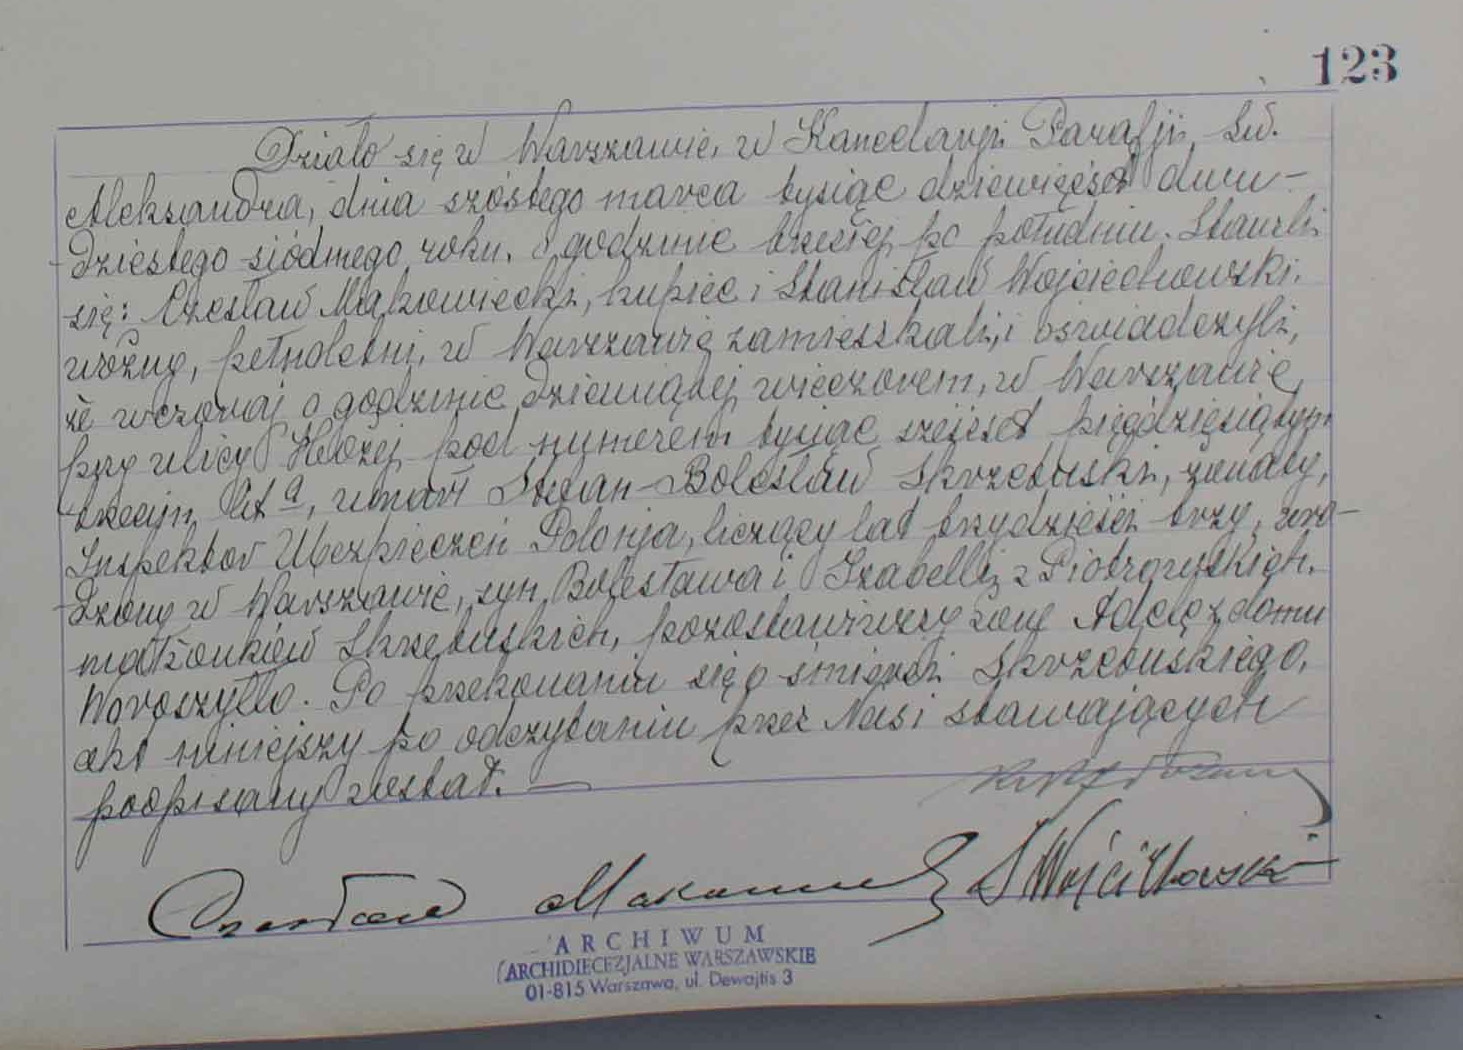 123
Działo się w Warszawie, w Kancelarji Parafji Św.
Aleksandra, dnia szóstego marca tysiąc dziewięćset dwu-
dziestego siódmego roku, o godzinie trzeciej po południu. Stawili
się: Czesław Makowiecki, kupiec i Stanisław Wojciechowski,
woźny, pełnoletni, w Warszawie zamieszkali, i oświadczyli,
że wczoraj o godzinie dziewiątej wieczorem, w Warszawie,
przy ulicy Hożej pod numerem tysiąc sześćset pięćdziesiątym
trzecim lit a, umarł Stefan-Bolesław Skrzetuski, żonaty,
Inspektor Ubezpieczeń Polonja, liczący lat trzydzieści trzy, uro-
dzony w Warszawie, syn Bolesława i Izabelli z Piotrowskich,
małżonków Skrzetuskich, pozostawiwszy żonę Adelę z domu
Woroszyłło. Po przekonaniu się o śmierci Skrzetuskiego,
akt niniejszy po odczytaniu przez Nas i stawających
podpisany został. —
Czesław Makowiecki S Wojciechowski
ARCHIWUM
ARCHIDIECEZJALNE WARSZAWSKIE
01-815 Warszawa, ul. Dewajtis 3